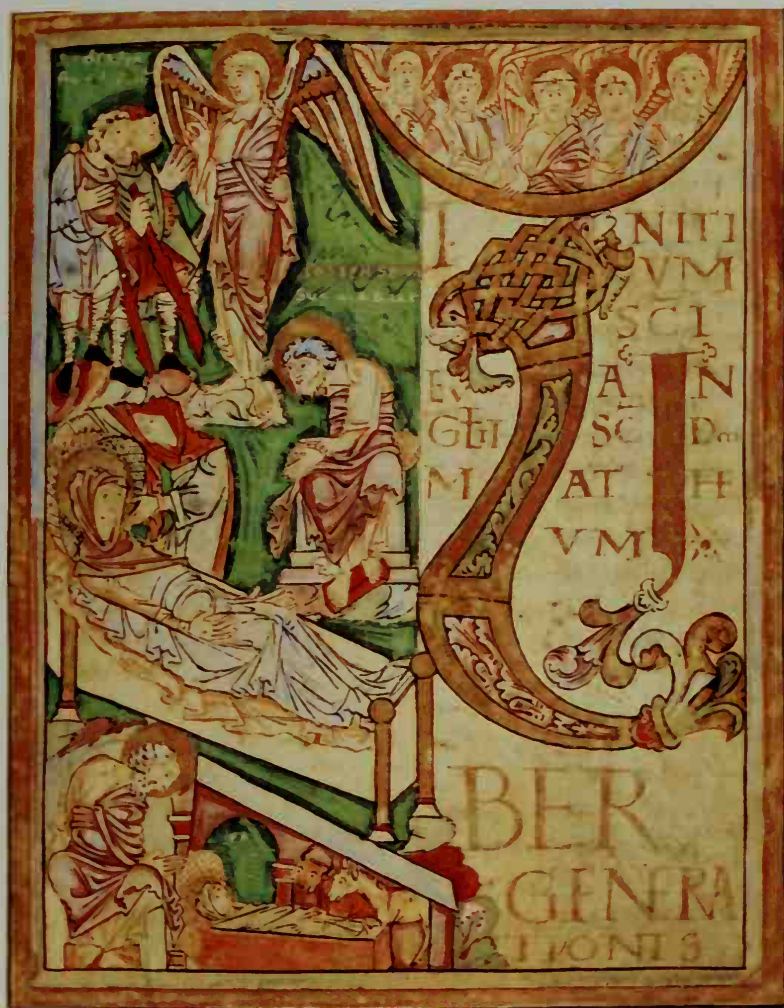 I NITI
VM
SCI
EV A N
GELII SC Dm
M AT FE
VM
LI
BER
GENERA
TIONIS